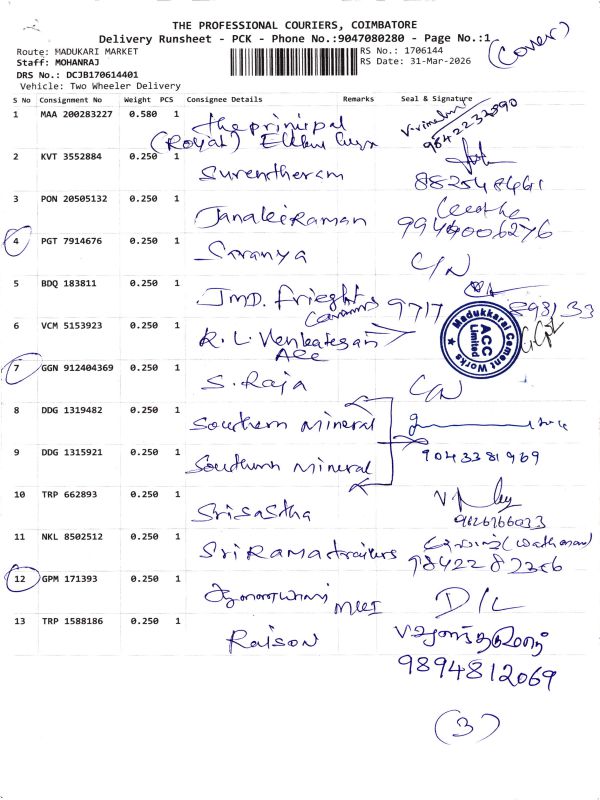 THE PROFESSIONAL COURIERS, COIMBATORE
Delivery Runsheet - PCK - Phone No.:9047080280 - Page No.:1
(Cover)
Route: MADUKARI MARKET
RS No.: 1706144
Staff: MOHANRAJ
RS Date: 31-Mar-2026
DRS No.: DCJB170614401
Vehicle: Two Wheeler Delivery
S No Consignment No Weight PCS Consignee Details Remarks Seal & Signature
1 MAA 200283227 0.580 1 the principal
(Royal)
2 KVT 3552884 0.250 1 Surentheram
3 PON 20505132 0.250 1 Janakiraman
4 PGT 7914676 0.250 1 Saranya C/N
5 BDQ 183811 0.250 1 JMD. Frieght 9717 898133
6 VCM 5153923 0.250 1 R. L. Venkatesan
ACC
Madukkarai Cement Works
ACC
Limited
7 GGN 912404369 0.250 1 S. Raja C/N
8 DDG 1319482 0.250 1 Southern Mineral
9 DDG 1315921 0.250 1 Southern Mineral 9043381969
10 TRP 662893 0.250 1 Srisastha
9626766033
11 NKL 8502512 0.250 1 Sri Rama trailers
9842282356
12 GPM 171393 0.250 1 D/L
13 TRP 1588186 0.250 1 Raison
9894812069
(3)